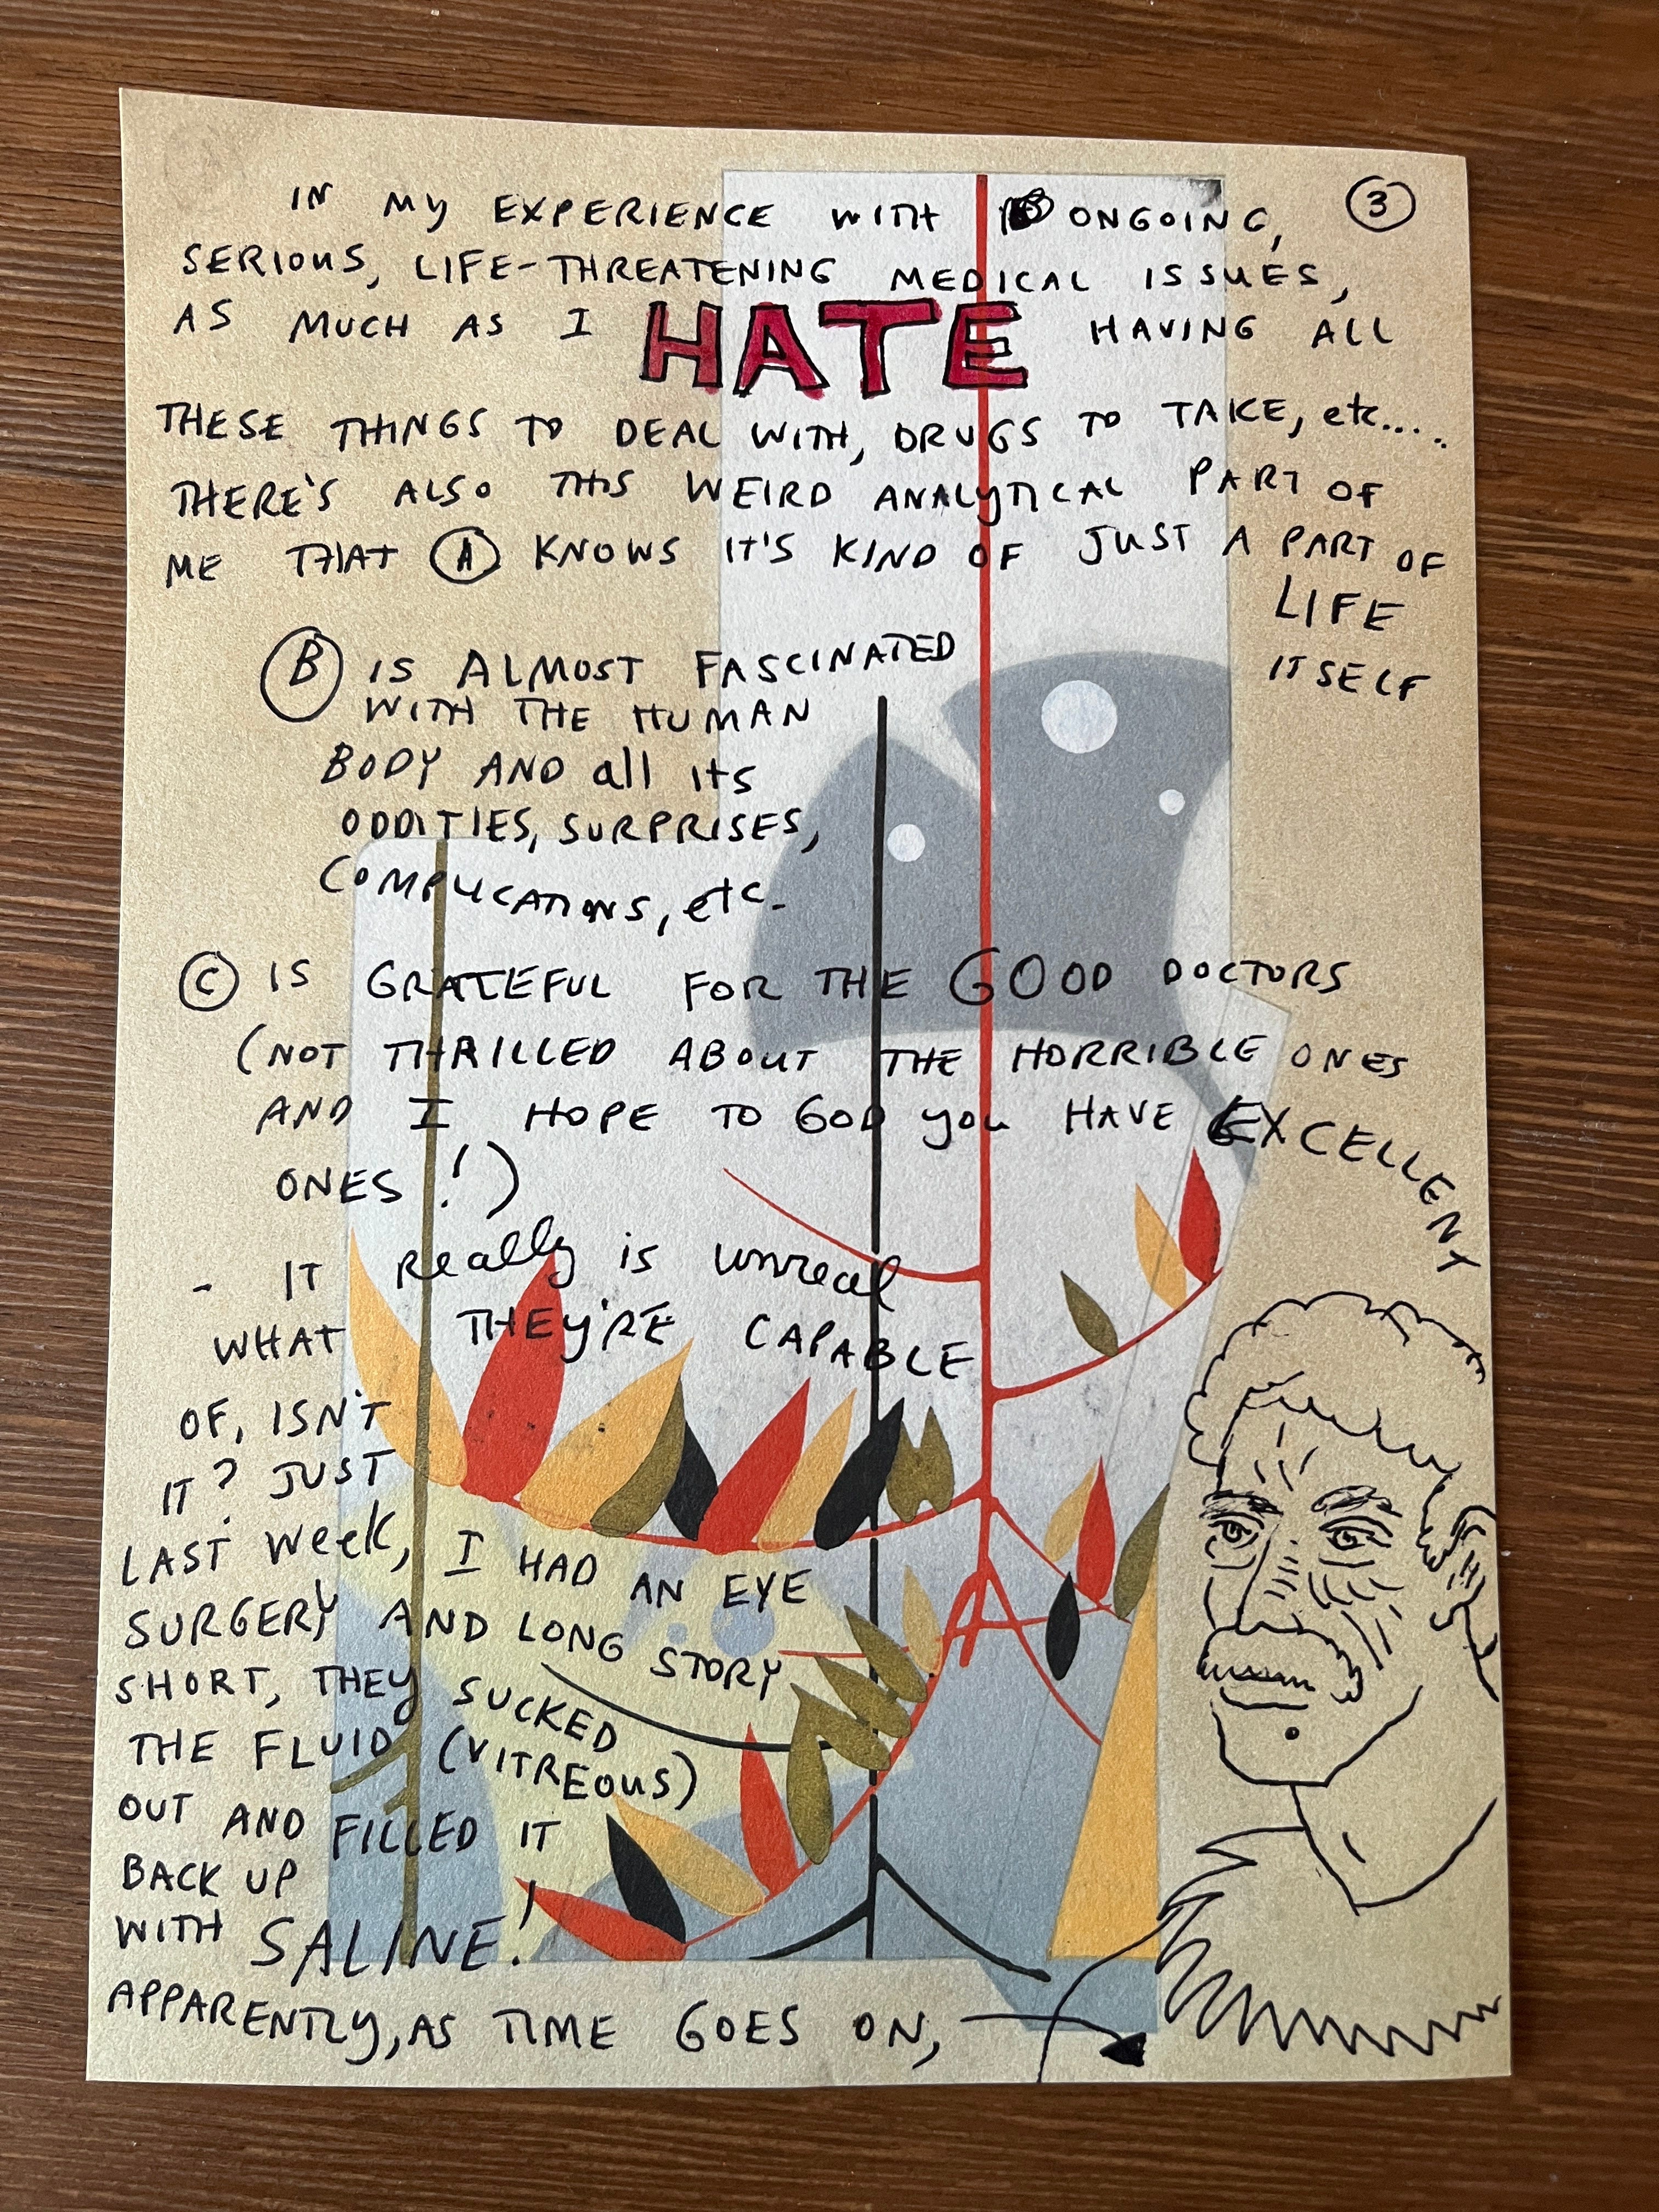 ③
IN MY EXPERIENCE WITH ONGOING,
SERIOUS, LIFE-THREATENING MEDICAL ISSUES,
AS MUCH AS I HATE HAVING ALL
THESE THINGS TO DEAL WITH, DRUGS TO TAKE, etc....
THERE'S ALSO THIS WEIRD ANALYTICAL PART OF
ME THAT Ⓐ KNOWS IT'S KIND OF JUST A PART OF
LIFE
ITSELF
Ⓑ IS ALMOST FASCINATED
WITH THE HUMAN
BODY AND all ITS
ODDITIES, SURPRISES,
COMPLICATIONS, etc.
Ⓒ IS GRATEFUL FOR THE GOOD DOCTORS
(NOT THRILLED ABOUT THE HORRIBLE ONES
AND I HOPE TO GOD you HAVE EXCELLENT
ONES!)
- IT Really is unreal
WHAT THEY'RE CAPABLE
OF, ISN'T
IT? JUST
LAST Week, I HAD AN EYE
SURGERY AND LONG STORY
SHORT, THEY SUCKED
THE FLUID (VITREOUS)
OUT AND FILLED IT
BACK UP
WITH SALINE!
APPARENTLY, AS TIME GOES ON,